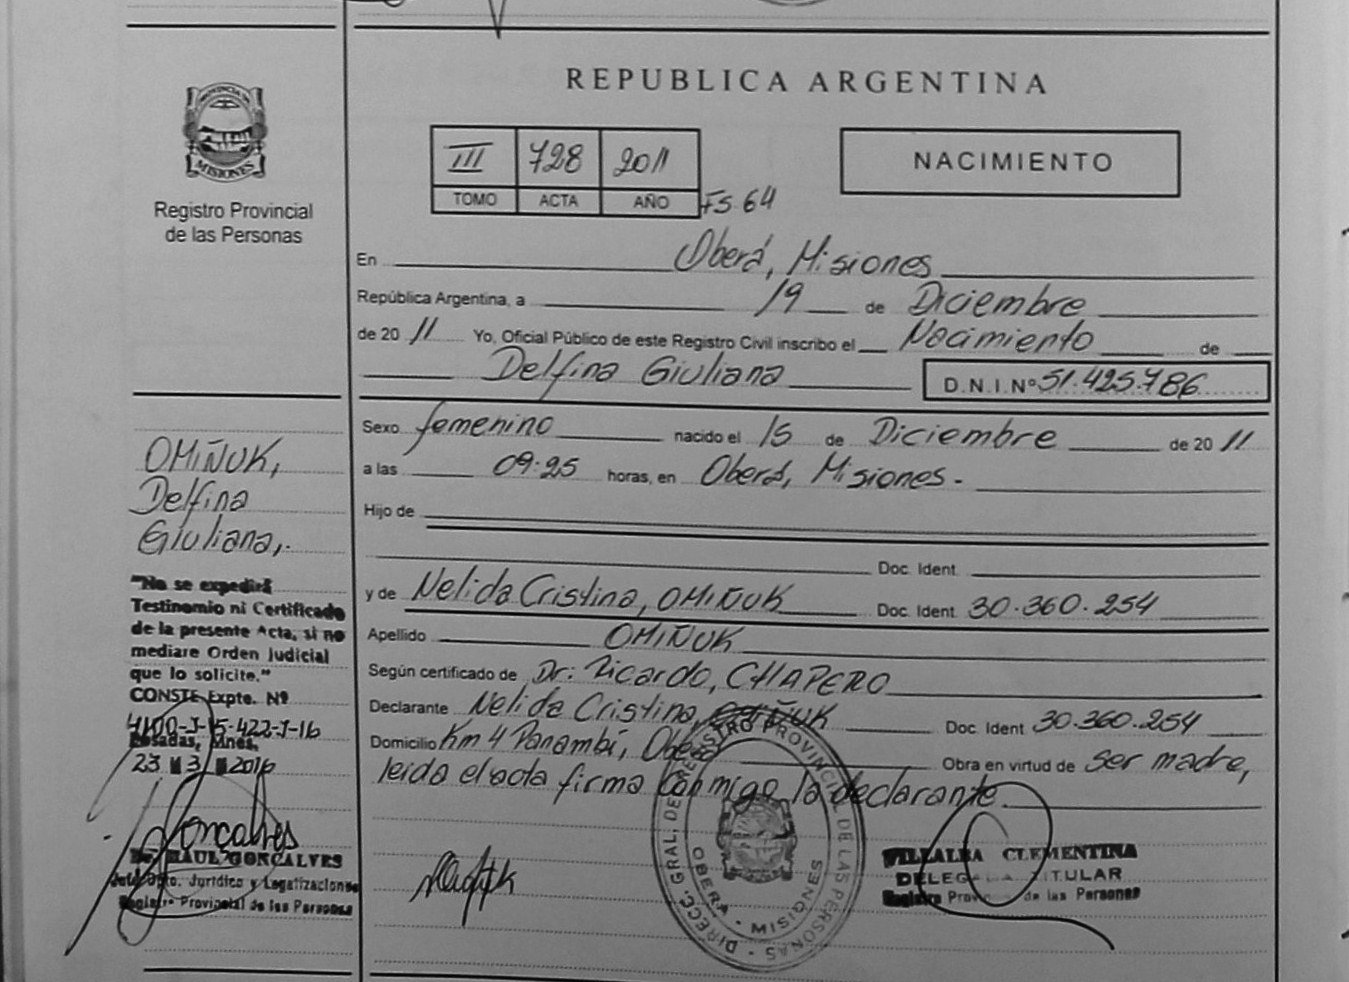 REPUBLICA ARGENTINA
III 728 2011
TOMO ACTA AÑO FS. 64
NACIMIENTO
PROVINCIA DE
MISIONES
Registro Provincial
de las Personas
En Oberá, Misiones
República Argentina, a 19 de Diciembre
de 2011 Yo, Oficial Público de este Registro Civil inscribo el Nacimiento de
Delfina Giuliana D.N.I.Nº 51.425.786
Sexo femenino nacido el 15 de Diciembre de 2011
a las 09:25 horas, en Oberá, Misiones.
Hijo de
Doc. Ident.
y de Nelida Cristina, OMIÑUK Doc. Ident. 30.360.254
Apellido OMIÑUK
Según certificado de Dr. Ricardo, CHAPERO
Declarante Nelida Cristina, OMIÑUK Doc. Ident. 30.360.254
Domicilio Km 4 Panambí, Oberá Obra en virtud de ser madre,
leida el acta firma conmigo la declarante
OMIÑUK,
Delfina
Giuliana,.
"No se expedirá
Testimonio ni Certificado
de la presente Acta, si no
mediare Orden Judicial
que lo solicite."
CONSTE Expte. Nº
4100-J-15-422-J-16
Posadas, Mnes,
23 3 2016
Goncalves
Dr. RAUL GONCALVES
Jefe Dpto. Jurídico y Legalizaciones
Registro Provincial de las Personas
DIRECC. GRAL. DE REGISTRO PROVINCIAL DE LAS PERSONAS
OBERA - MISIONES
VILLALBA CLEMENTINA
DELEGADA TITULAR
Registro Provincial de las Personas